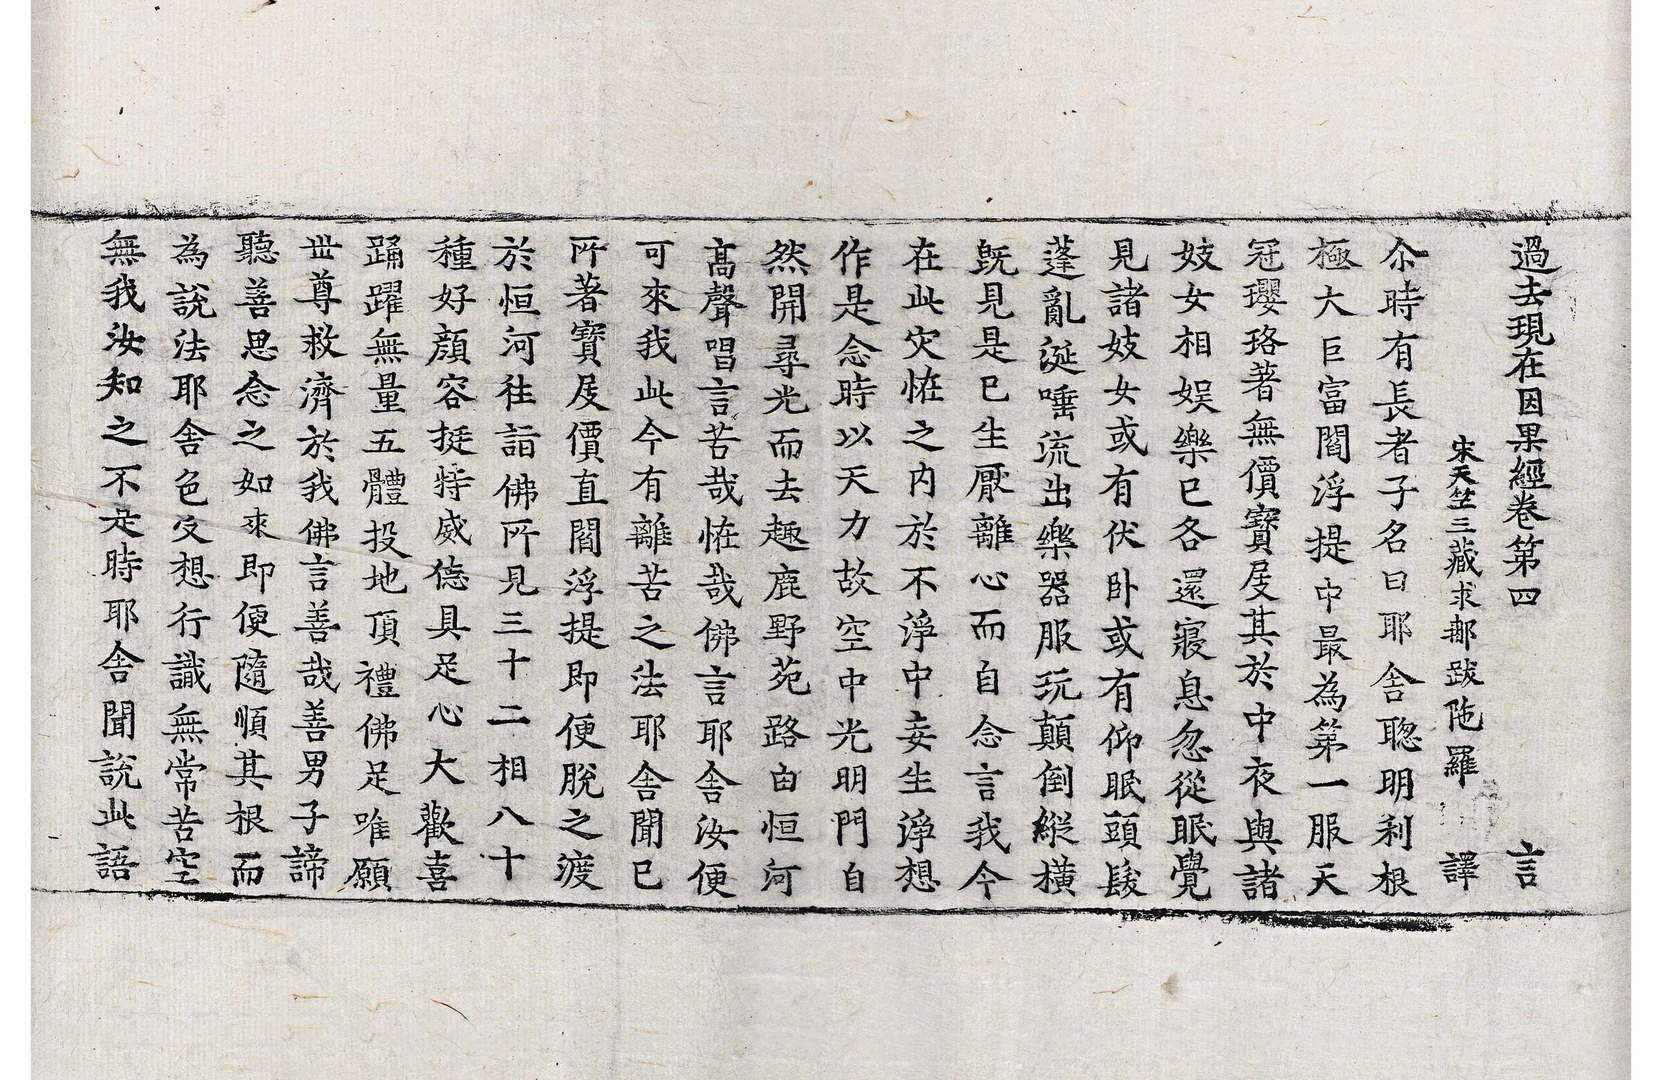 過去現在因果經卷第四 言
宋天竺三藏求那跋陁羅 譯
尒時有長者子名曰耶舍聡明利根
極大巨富閻浮提中最為第一服天
冠瓔珞著無價寶屐其於中夜與諸
妓女相娛樂已各還寢息忽從眠覺
見諸妓女或有伏卧或有仰眠頭髮
蓬亂涎唾流出樂器服玩顛倒縱橫
既見是已生厭離心而自念言我今
在此灾恠之內於不淨中妄生淨想
作是念時以天力故空中光明門自
然開尋光而去趣鹿野苑路由恒河
髙聲唱言苦哉恠哉佛言耶舍汝便
可來我此今有離苦之法耶舍聞已
所著寶屐價直閻浮提即便脫之渡
於恒河往詣佛所見三十二相八十
種好顔容挺特威德具足心大歡喜
踊躍無量五體投地頂禮佛足唯願
世尊救濟於我佛言善哉善男子諦
聽善思念之如来即便隨順其根而
為說法耶舍色受想行識無常苦空
無我汝知之不是時耶舍聞說此語